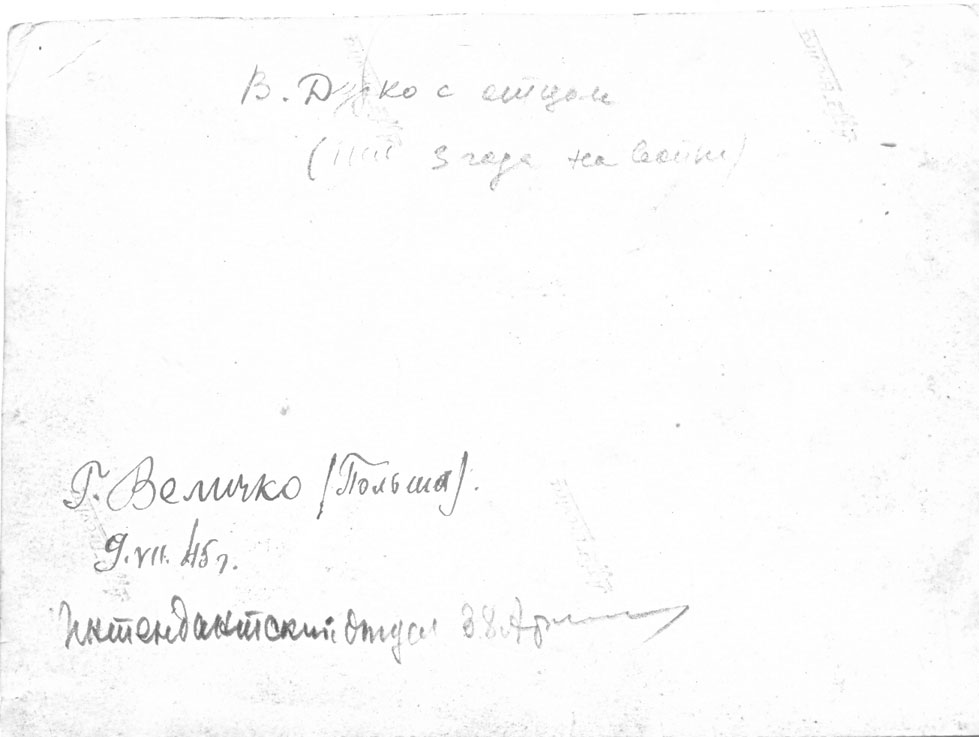 В. с отцом
( 3 года на войне)
Г. Величко (Польша).
9.VII.45 г.
Интендантский отдел 38 Армии